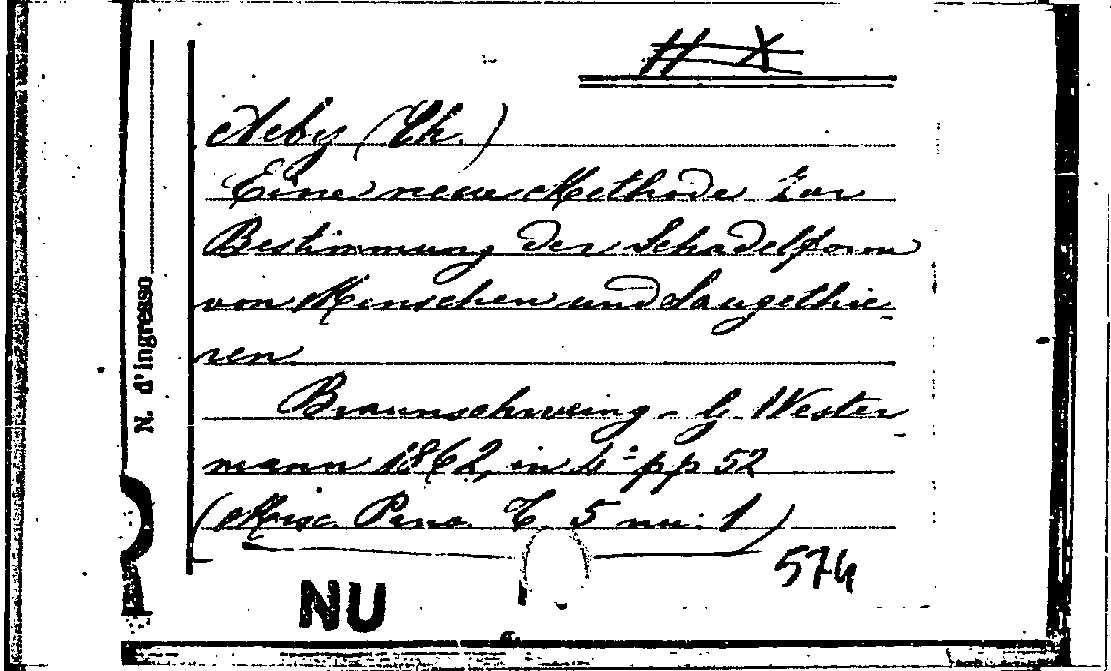 Aeby (Ch.)
Eine neue Methode zur
Bestimmung der Schadelform
von Menschen und Saugethie-
ren
Braunschweing - G Wester-
mann 1862, in 4° pp 52
(Misc. Pens. T. 5 nu: 1)
574
NU
N. d'ingresso